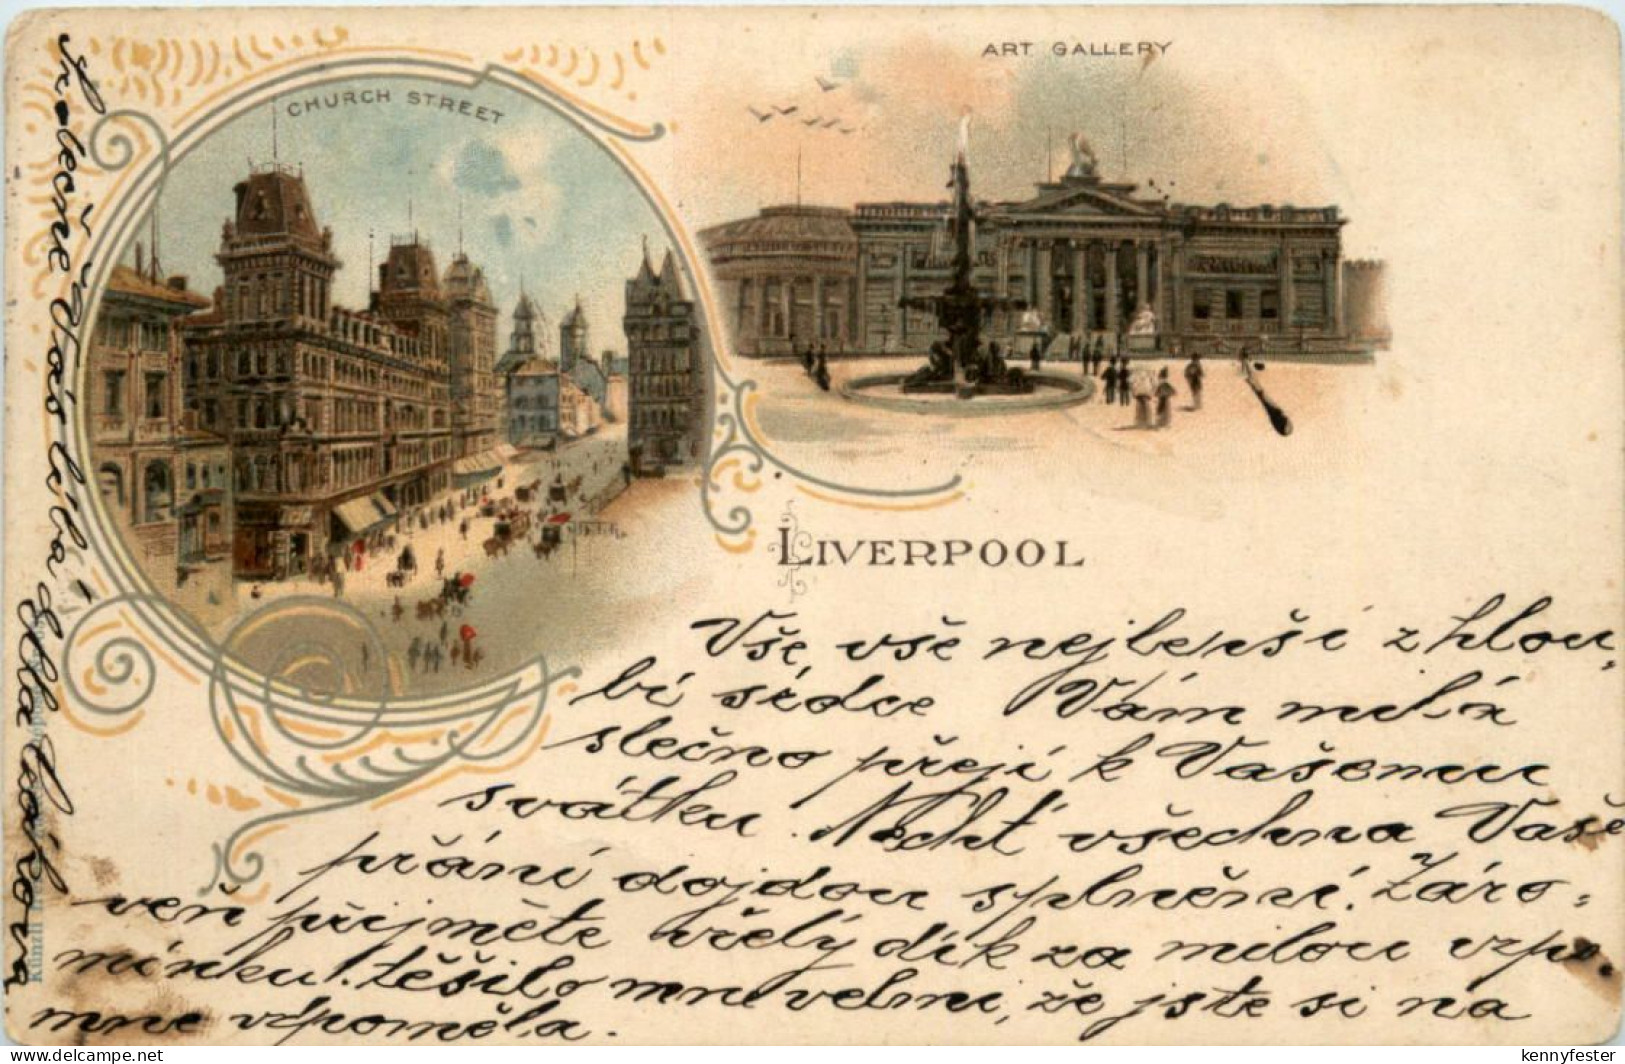 CHURCH STREET
ART GALLERY
LIVERPOOL
Vše, vše nejlepší z hlou-
bi srdce Vám milá
slečno přeji k Vašemu
svátku. Nechť všechna Vaše
přání dojdou splnění. Záro-
veň přijměte vřelý dík za milou vzpo-
mínku! těšilo mne velmi, že jste si na
mne vzpoměla.
Srdečně Vás líbá
Künzli
kennyfester
www.delcampe.net